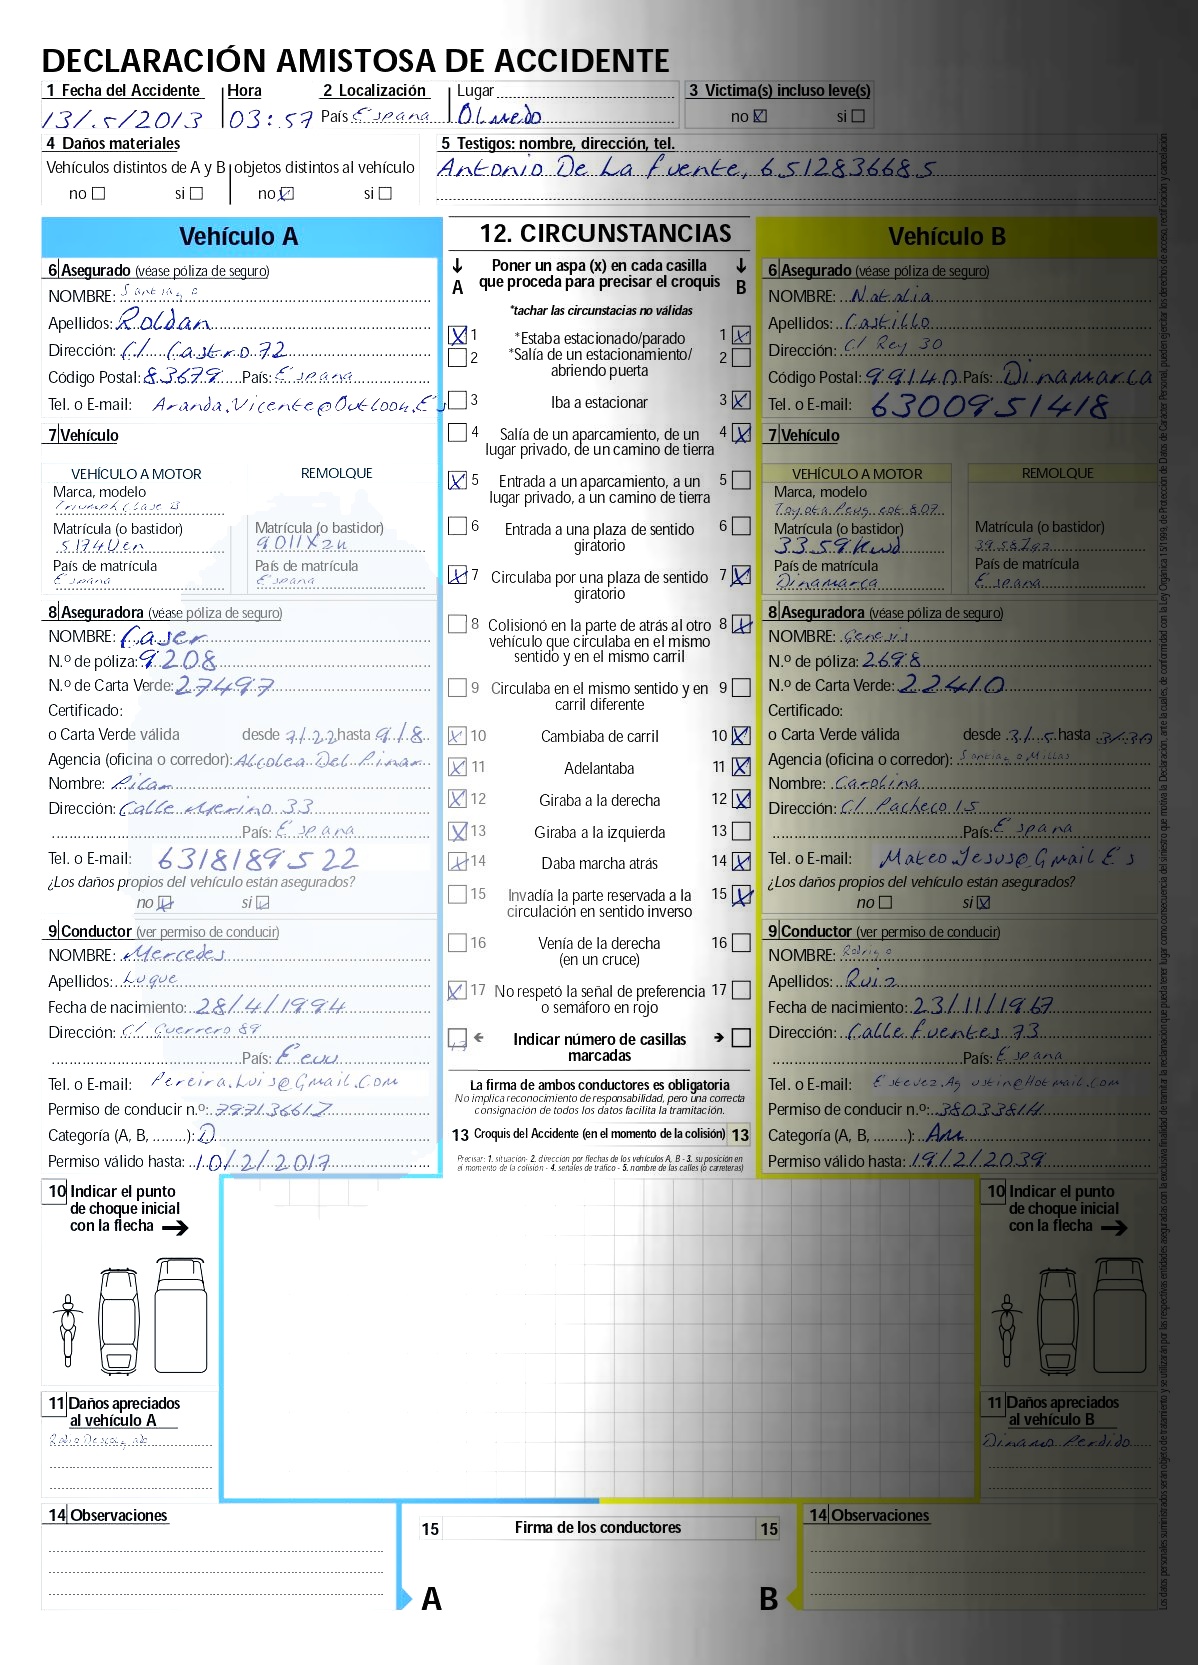 DECLARACIÓN AMISTOSA DE ACCIDENTE
1 Fecha del Accidente Hora 2 Localización Lugar 3 Victima(s) incluso leve(s)
13/5/2013 03:57 País España Olmedo no si
4 Daños materiales 5 Testigos: nombre, dirección, tel.
Vehículos distintos de A y B objetos distintos al vehículo Antonio De La Fuente, 6512836685
no si no si
Vehículo A
6 Asegurado (véase póliza de seguro)
NOMBRE: Santiago
Apellidos: Roldan
Dirección: C/ Castro 72
Código Postal: 83679 País: España
Tel. o E-mail: Aranda.Vicente@Outlook.Es
7 Vehículo
VEHÍCULO A MOTOR REMOLQUE
Marca, modelo
Triumph Clase B
Matrícula (o bastidor) Matrícula (o bastidor)
5174Uen 9011Xzn
País de matrícula País de matrícula
España España
8 Aseguradora (véase póliza de seguro)
NOMBRE: Caser
N.º de póliza: 9208
N.º de Carta Verde: 27497
Certificado:
o Carta Verde válida desde 7/22 hasta 9/8
Agencia (oficina o corredor): Alcolea Del Pinar
Nombre: Pilar
Dirección: Calle Merino 33
País: España
Tel. o E-mail: 6318189522
¿Los daños propios del vehículo están asegurados?
no si
9 Conductor (ver permiso de conducir)
NOMBRE: Mercedes
Apellidos: Luque
Fecha de nacimiento: 28/4/1994
Dirección: C/ Guerrero 89
País: Eeuu
Tel. o E-mail: Pereira.Luis@Gmail.Com
Permiso de conducir n.º: 79713661Z
Categoría (A, B, ........): D
Permiso válido hasta: 10/2/2017
12. CIRCUNSTANCIAS
A Poner un aspa (x) en cada casilla que proceda para precisar el croquis B
*tachar las circunstacias no válidas
1 *Estaba estacionado/parado 1
2 *Salía de un estacionamiento/ 2
abriendo puerta
3 Iba a estacionar 3
4 Salía de un aparcamiento, de un 4
lugar privado, de un camino de tierra
5 Entrada a un aparcamiento, a un 5
lugar privado, a un camino de tierra
6 Entrada a una plaza de sentido 6
giratorio
7 Circulaba por una plaza de sentido 7
giratorio
8 Colisionó en la parte de atrás al otro 8
vehículo que circulaba en el mismo
sentido y en el mismo carril
9 Circulaba en el mismo sentido y en 9
carril diferente
10 Cambiaba de carril 10
11 Adelantaba 11
12 Giraba a la derecha 12
13 Giraba a la izquierda 13
14 Daba marcha atrás 14
15 Invadía la parte reservada a la 15
circulación en sentido inverso
16 Venía de la derecha 16
(en un cruce)
17 No respetó la señal de preferencia 17
o semáforo en rojo
Indicar número de casillas
marcadas
La firma de ambos conductores es obligatoria
No implica reconocimiento de responsabilidad, pero una correcta
consignacion de todos los datos facilita la tramitación.
13 Croquis del Accidente (en el momento de la colisión) 13
Precisar: 1. situación- 2. dirección por flechas de los vehículos A, B - 3. su posición en
el momento de la colisión - 4. señales de tráfico - 5. nombre de las calles (o carreteras)
Vehículo B
6 Asegurado (véase póliza de seguro)
NOMBRE: Natalia
Apellidos: Castillo
Dirección: C/ Rey 30
Código Postal: 99140 País: Dinamarca
Tel. o E-mail: 6300951418
7 Vehículo
VEHÍCULO A MOTOR REMOLQUE
Marca, modelo
Toyota Peugeot 807
Matrícula (o bastidor) Matrícula (o bastidor)
3359Kwd 3958Zgz
País de matrícula País de matrícula
Dinamarca España
8 Aseguradora (véase póliza de seguro)
NOMBRE: Genesis
N.º de póliza: 2698
N.º de Carta Verde: 22410
Certificado:
o Carta Verde válida desde 31/5 hasta 3/30
Agencia (oficina o corredor): Santiago Millas
Nombre: Carolina
Dirección: C/ Pacheco 15
País: España
Tel. o E-mail: Mateo.Jesus@Gmail.Es
¿Los daños propios del vehículo están asegurados?
no si
9 Conductor (ver permiso de conducir)
NOMBRE: Rodrigo
Apellidos: Ruiz
Fecha de nacimiento: 23/11/1967
Dirección: Calle Fuentes 73
País: España
Tel. o E-mail: Estevez.Agustin@Hotmail.Com
Permiso de conducir n.º: 38033814
Categoría (A, B, ........): Am
Permiso válido hasta: 19/2/2039
10 Indicar el punto
de choque inicial
con la flecha
11 Daños apreciados
al vehículo A
Radio Descolgado
10 Indicar el punto
de choque inicial
con la flecha
11 Daños apreciados
al vehículo B
Dinamo Perdido
14 Observaciones
15 Firma de los conductores 15
A B
14 Observaciones